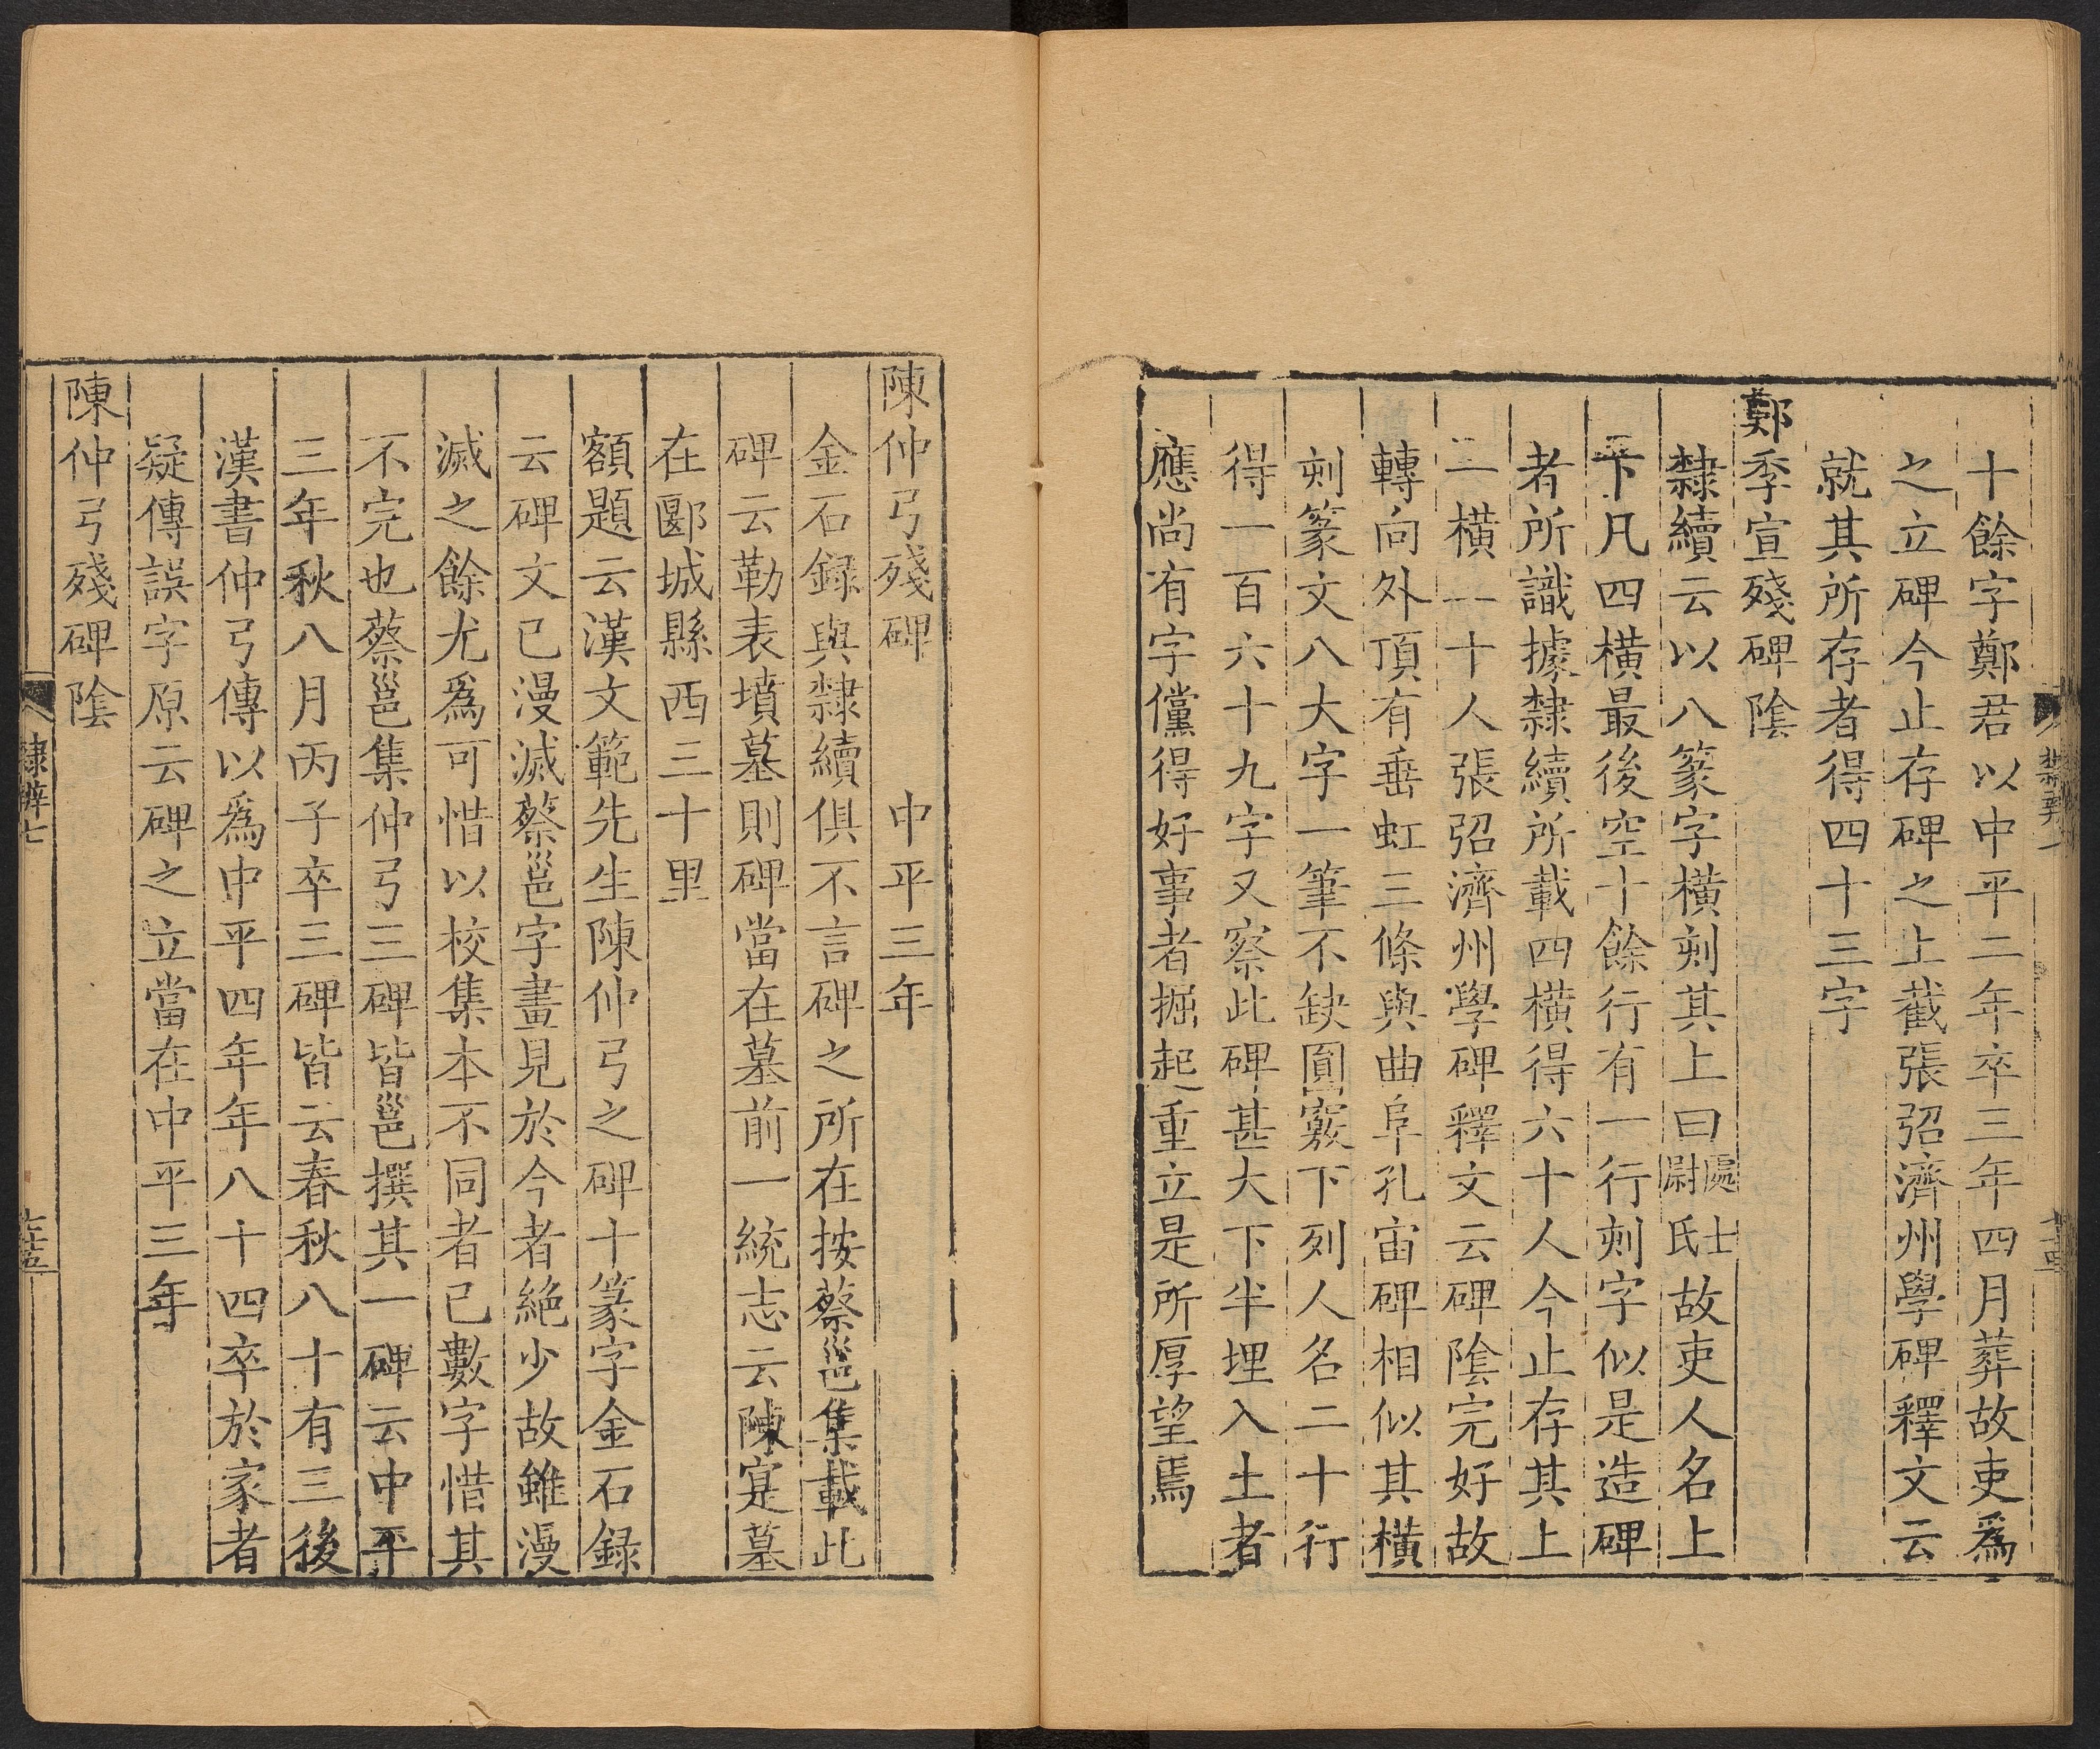 十餘字鄭君以中平二年卒三年四月葬故吏爲
之立碑今止存碑之上截張弨濟州學碑釋文云
就其所存者得四十三字
鄭季宣殘碑陰
隸續云以八篆字橫刻其上曰處士尉氏故吏人名上
下凡四橫最後空十餘行有一行刻字似是造碑
者所識據隸續所載四橫得六十人今止存其上
二橫一十人張弨濟州學碑釋文云碑陰完好故
轉向外頂有垂虹三條與曲阜孔宙碑相似其橫
刻篆文八大字一筆不缺圓竅下列人名二十行
得一百六十九字又察此碑甚大下半埋入土者
應尚有字儻得好事者掘起重立是所厚望焉
陳仲弓殘碑 中平三年
金石録與隸續俱不言碑之所在按蔡邕集載此
碑云勒表墳墓則碑當在墓前一統志云陳寔墓
在郾城縣西三十里
額題云漢文範先生陳仲弓之碑十篆字金石録
云碑文已漫滅蔡邕字畫見於今者絶少故雖漫
滅之餘尤爲可惜以校集本不同者已數字惜其
不完也蔡邕集仲弓三碑皆邕撰其一碑云中平
三年秋八月丙子卒三碑皆云春秋八十有三後
漢書仲弓傳以爲中平四年年八十四卒於家者
疑傳誤字原云碑之立當在中平三年
陳仲弓殘碑陰
隸辨七
七十五